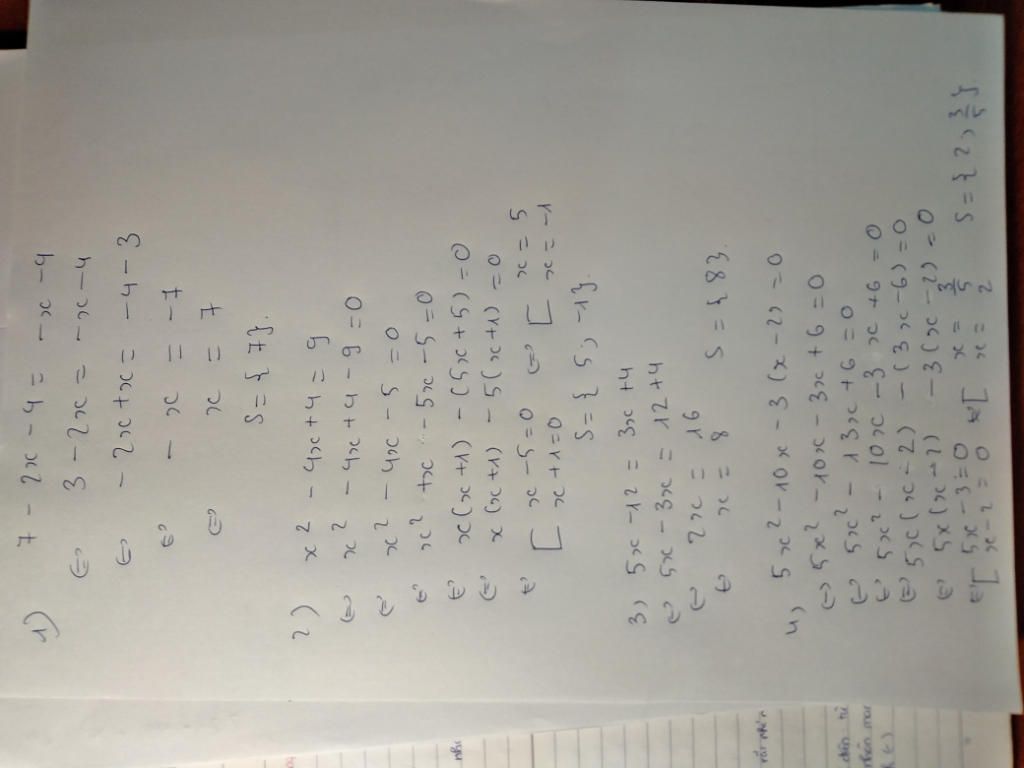 1) 7 - 2x - 4 = -x - 4
⇔ 3 - 2x = -x - 4
⇔ - 2x + x = - 4 - 3
⇔ - x = - 7
⇔ x = 7
S = { 7 }.
2) x² - 4x + 4 = 9
⇔ x² - 4x + 4 - 9 = 0
⇔ x² - 4x - 5 = 0
⇔ x² + x - 5x - 5 = 0
⇔ x(x + 1) - (5x + 5) = 0
⇔ x(x + 1) - 5(x + 1) = 0
⇔ [ x - 5 = 0 ⇔ [ x = 5
x + 1 = 0 x = -1
S = { 5 , -1 }.
3) 5x - 12 = 3x + 4
⇔ 5x - 3x = 12 + 4
⇔ 2x = 16
⇔ x = 8 S = { 8 }.
4) 5x² - 10x - 3(x - 2) = 0
⇔ 5x² - 10x - 3x + 6 = 0
⇔ 5x² - 13x + 6 = 0
⇔ 5x² - 10x - 3x + 6 = 0
⇔ 5x(x - 2) - (3x - 6) = 0
⇔ 5x(x - 2) - 3(x - 2) = 0
⇔ [ 5x - 3 = 0 ⇔ [ x = 3/5
x - 2 = 0 x = 2 S = { 2 , 3/5 }.